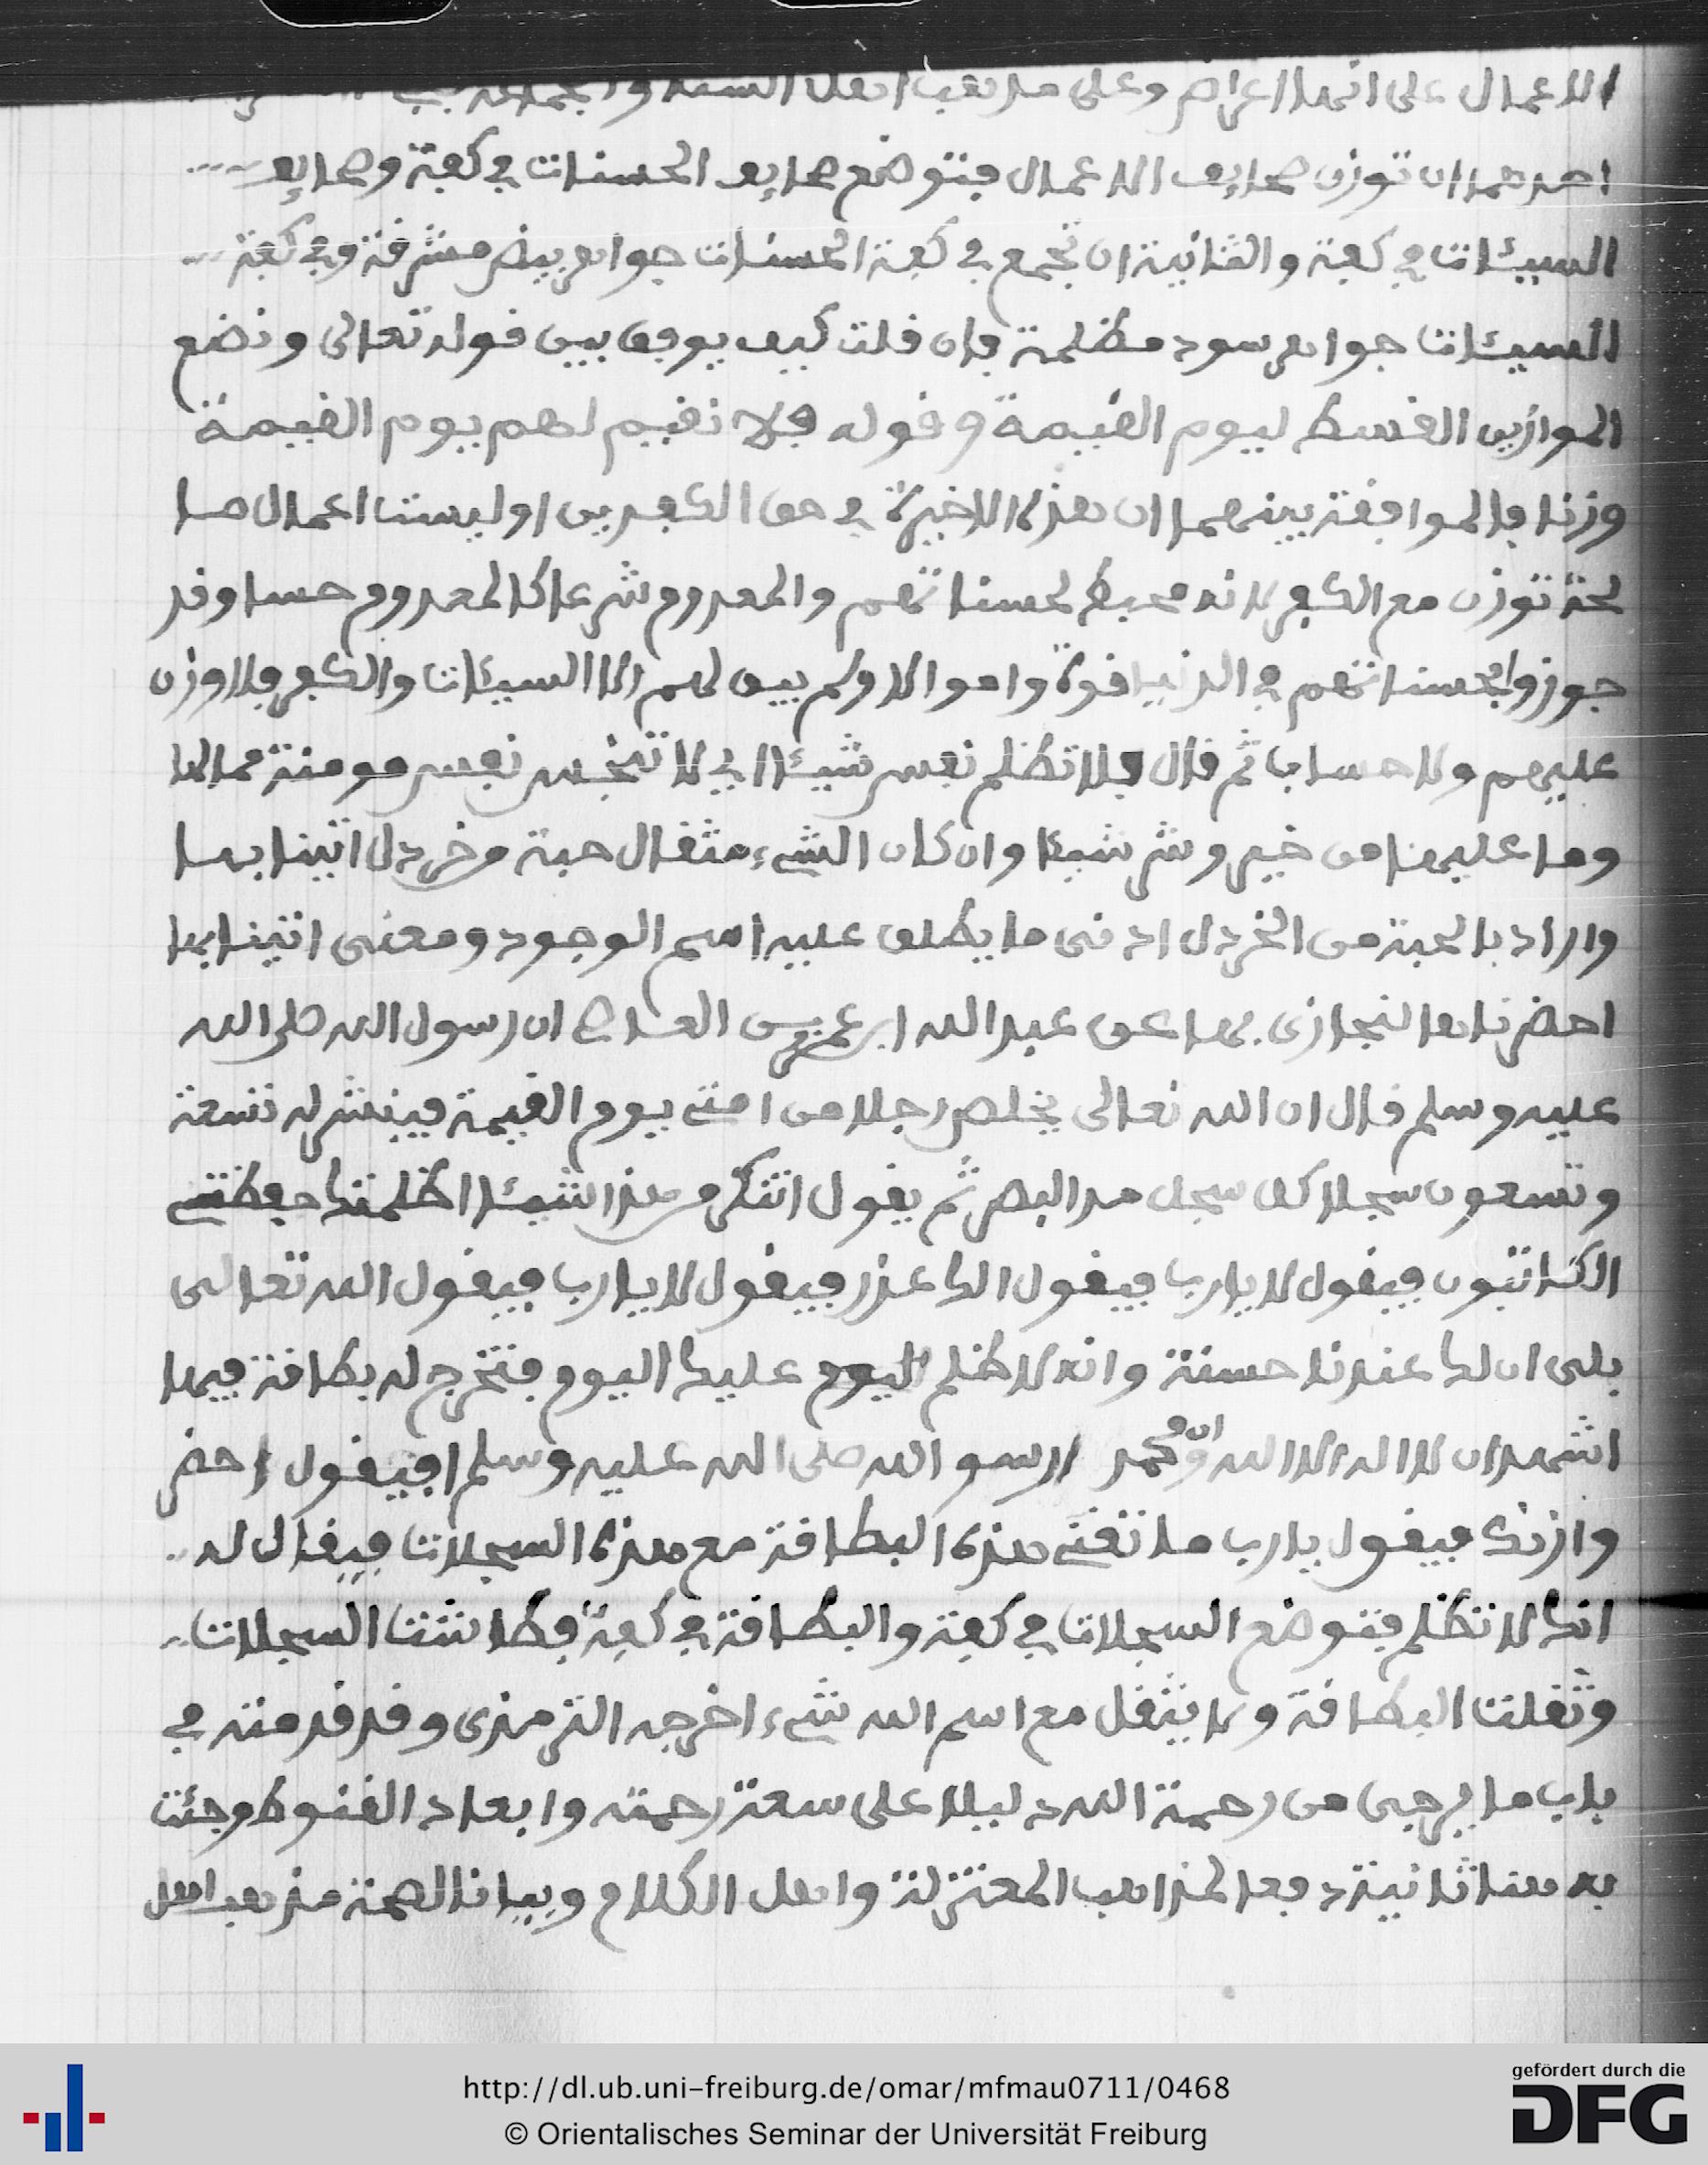 الاعمال على انها اعراض وعلى مذهب اهل السنة والجماعة
احدهما ان توزن صحايف الاعمال فتوضع صحايف الحسنات في كفة وصحايف
السيئات في كفة والثانية ان تجمع في كفة الحسنات جواهر بيض مشرفة وفي كفة
السيئات جواهر سود مظلمة فان قلت كيف يوفق بين قوله تعالى ونضع
الموازين القسط ليوم القيمة وقوله فلا نقيم لهم يوم القيمة
وزنا فالموافقة بينهما ان هذه الاخيرة في حق الكفرين اوليست اعمال صا
لحة توزن مع الكفر لانه محبط لحسناتهم والمعدوم شرعا كالمعدوم حسا وقد
جوزوا بحسناتهم في الدنيا قوة واموالا ولم يبق لهم الا السيئات والكفر فلا وزن
عليهم ولا حساب ثم قال فلا تظلم نفس شيئا اي لا تبخس نفس مومنة مما لها
وما عليها من خير وشر شيئا وان كان الشيء مثقال حبة من خردل اتينا بها
واراد بالحبة من الخردل ادنى ما يطلق عليه اسم الوجود ومعنى اتينا بها
احضرناها لنجازى بها عن عبد الله ابن عمرو بن العاص ان رسول الله صلى الله
عليه وسلم قال ان الله تعالى يخلص رجلا من امتي يوم القيمة فينشر له تسعة
وتسعون سجلا كل سجل مد البصر ثم يقول اتنكر من هذا شيئا اظلمتك حفظتي
الكاتبون فيقول لا يارب فيقول الك عذر فيقول لا يارب فيقول الله تعالى
بلى ان لك عندنا حسنة وانه لا ظلم اليوم عليك اليوم فتخرج له بطاقة فيها
اشهد ان لا اله الا الله وان محمد ارسو الله صلى الله عليه وسلم افيقول احضر
وازنك فيقول يارب ما تغني هذه البطاقة مع هذه السجلات فيقال له
انك لا تظلم فتوضع السجلات في كفة والبطاقة في كفة فطاشت السجلات
وثقلت البطاقة ولا يثقل مع اسم الله شيء اخرجه الترمذى وقد قدمته في
باب ما يرجى من رحمة الله دليلا على سعة رحمته وابعاد القنوط وجئت
به هنا ثانية دفعا لمذاهب المعتزلة واهل الكلام وبيانا لصحة مذهب اهل
http://dl.ub.uni-freiburg.de/omar/mfmau0711/0468
© Orientalisches Seminar der Universität Freiburg
gefördert durch die
DFG